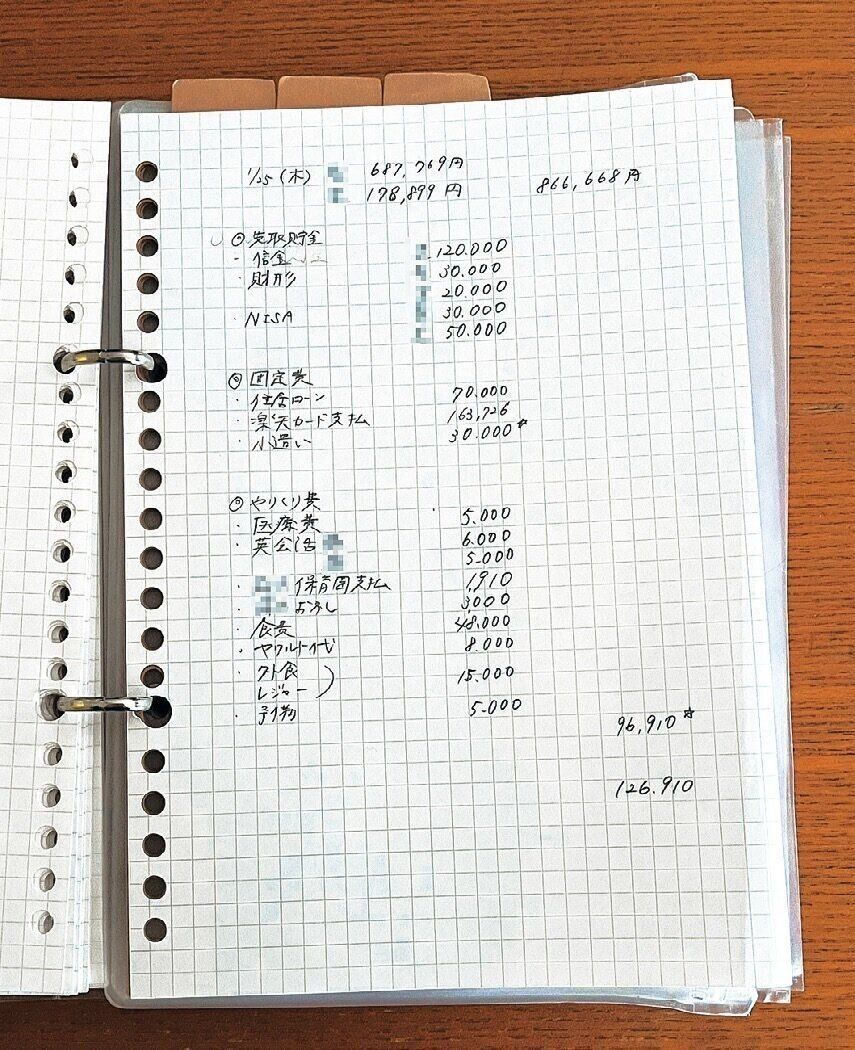 1/25(木) 687,769円
178,899円 866,668円
◎先取貯金
・信金 120.000
・財形 30.000
20.000
・NISA 30.000
50.000
◎固定費
・住宅ローン 70.000
・楽天カード支払 163,726
・小遣い 30.000☆
◎やりくり費
・医療費 5.000
・英会話 6.000
5.000
・保育園支払 1,910
・3,000
・食費 48,000
・ヤクルト代 8.000
・外食
レジャー) 15.000
・予備 5.000
96,910☆
126.910